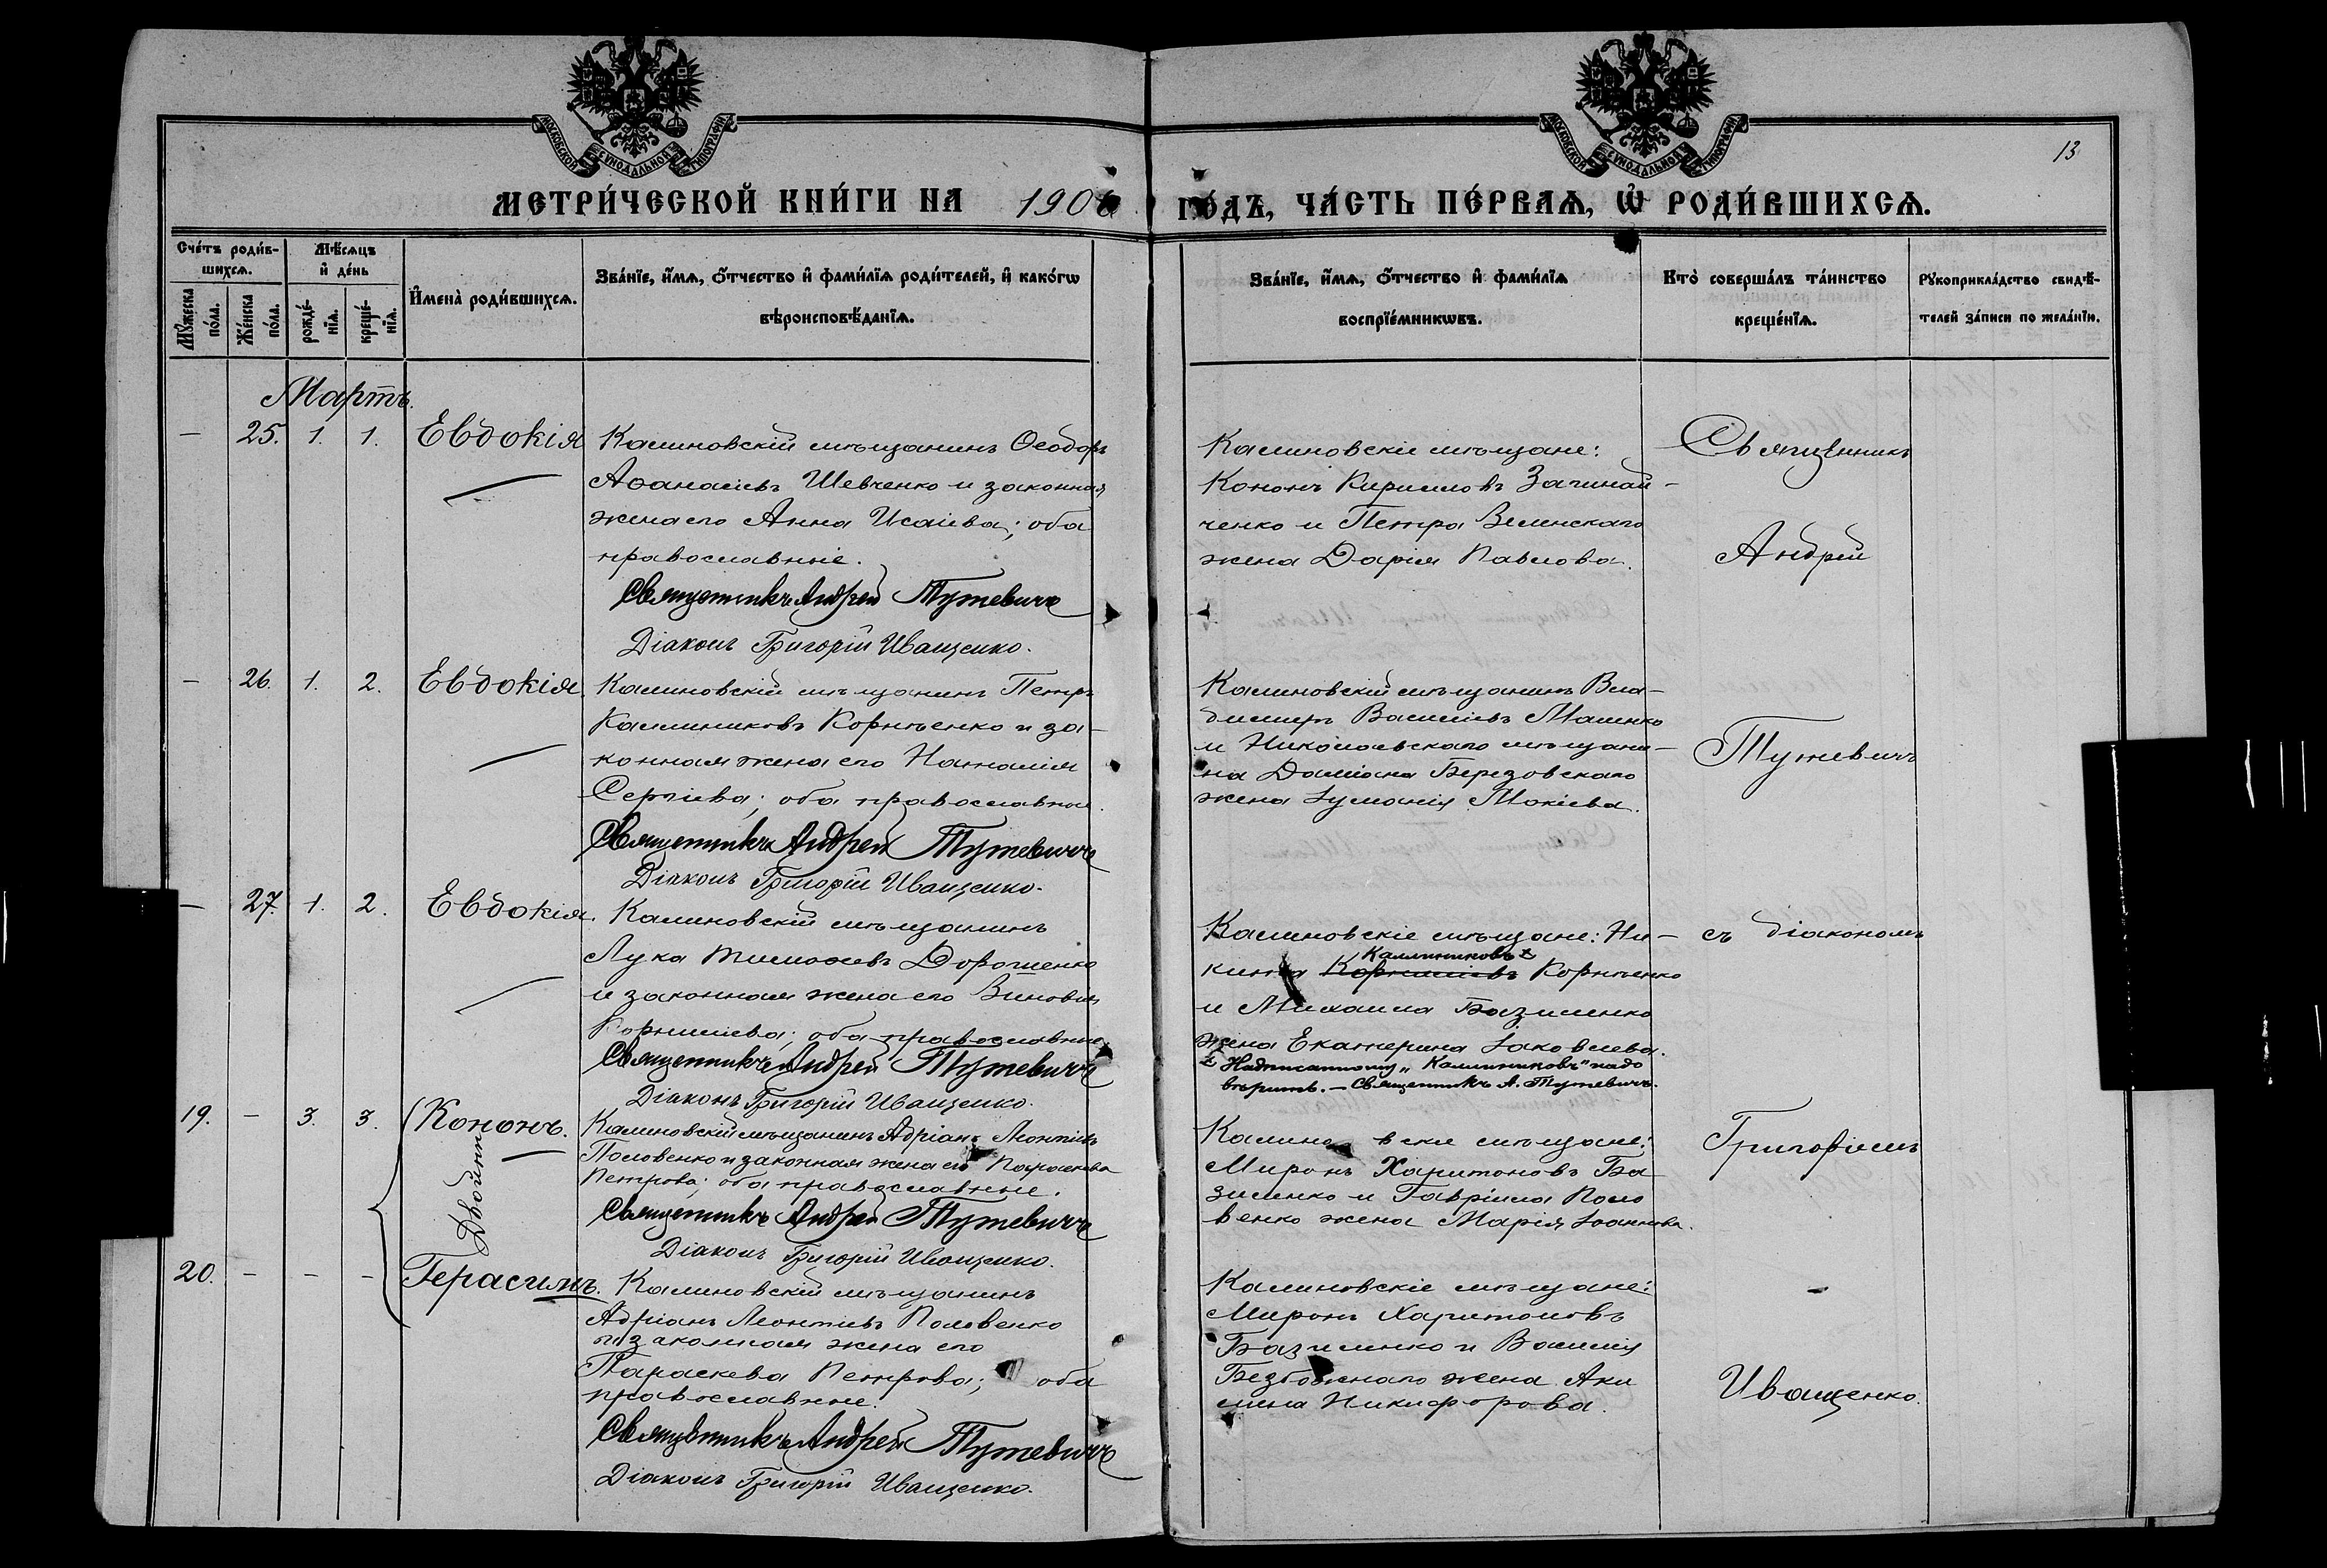 МОСКОВСКОЙ СѴНОДАЛЬНОЙ ТИПОГРАФІИ
МОСКОВСКОЙ СѴНОДАЛЬНОЙ ТИПОГРАФІИ
13
МЕТРИ́ЧЕСКОЙ КНИ́ГИ НА 1906 ГО́ДЪ, ЧА́СТЬ ПЕ́РВАѦ, Ѽ РОДИ́ВШИХСѦ.
Сче́тъ роди́в-
шихсѧ.
Мꙋ́жеска по́ла.
Же́нска по́ла.
Мѣ́сѧцъ
и҆ де́нь
рожде́-
нїѧ.
креще́-
нїѧ.
И҆мена̀ роди́вшихсѧ.
Зва́нїе, и҆́мѧ, ѻ҆́тчество и҆ фами́лїѧ роди́телей, и҆ како́гѡ
вѣроисповѣ́данїѧ.
Зва́нїе, и҆́мѧ, ѻ҆́тчество и҆ фами́лїѧ
воспрїе́мникѡвъ.
Кто̀ соверша́лъ та́инство
креще́нїѧ.
Рꙋкоприкла́дство свидѣ́-
телей за́писи по жела́нїю.
Мартъ.
— 25. 1. 1. Евдокія
Калиновскій мѣщанинъ Ѳеодоръ
Аѳанасіевъ Шевченко и законная
жена его Анна Исаіева; оба
православные.
Священникъ Андрей Тутевичъ
Діаконъ Григорій Иващенко.
Калиновскіе мѣщане:
Кононъ Кирилловъ Загинай-
ченко и Петра Велинскаго
жена Дарія Павлова.
Священникъ
Андрей
— 26. 1. 2. Евдокія
Калиновскій мѣщанинъ Петръ
Каллиниковъ Корнѣенко и за-
конная жена его Наталія
Сергіева; оба православные.
Священникъ Андрей Тутевичъ
Діаконъ Григорій Иващенко.
Калиновскій мѣщанинъ Вла-
димиръ Василіевъ Маленко
и Николаевскаго мѣщани-
на Даміана Березовскаго
жена Іуліанія Мокіева.
Тутевичъ
— 27. 1. 2. Евдокія.
Калиновскій мѣщанинъ
Лука Тимоѳеевъ Дорошенко
и законная жена его Виновія
Корниліева; оба православные
Священникъ Андрей Тутевичъ
Діаконъ Григорій Иващенко.
Калиновскіе мѣщане: Ни-
Каллиниковъ x
кита Корниліевъ Корнѣенко
и Михаила Базиленко
жена Екатерина Іаковлева.
x Надписанному „Каллиниковъ" надо
вѣрить. — Священникъ А. Тутевичъ.
съ діакономъ
19. — 3. 3. Кононъ.
Двойни
Калиновскій мѣщанинъ Адріанъ Леонтіевъ
Половенко и законная жена его Параскева
Петрова; оба православные.
Священникъ Андрей Тутевичъ
Діаконъ Григорій Иващенко.
Калиновскіе мѣщане:
Миронъ Харитоновъ Ба
зиленко и Гавріила Поло
венко жена Марія Іоаннова.
Григоріемъ
20. — — — Герасимъ.
Калиновскій мѣщанинъ
Адріанъ Леонтіевъ Половенко
и законная жена его
Параскева Петрова; оба
православные.
Священникъ Андрей Тутевичъ
Діаконъ Григорій Иващенко.
Калиновскіе мѣщане:
Миронъ Харитоновъ
Базиленко и Василія
Безбожнаго жена Аки
лина Никифорова.
Иващенко.